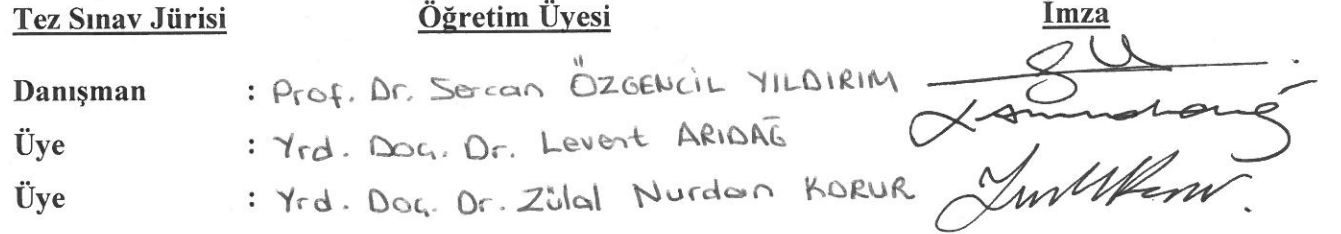 Tez Sınav Jürisi Öğretim Üyesi İmza
Danışman : Prof. Dr. Sercan ÖZGENCİL YILDIRIM
Üye : Yrd. Doç. Dr. Levent ARIDAĞ
Üye : Yrd. Doç. Dr. Zülal Nurdan KORUR